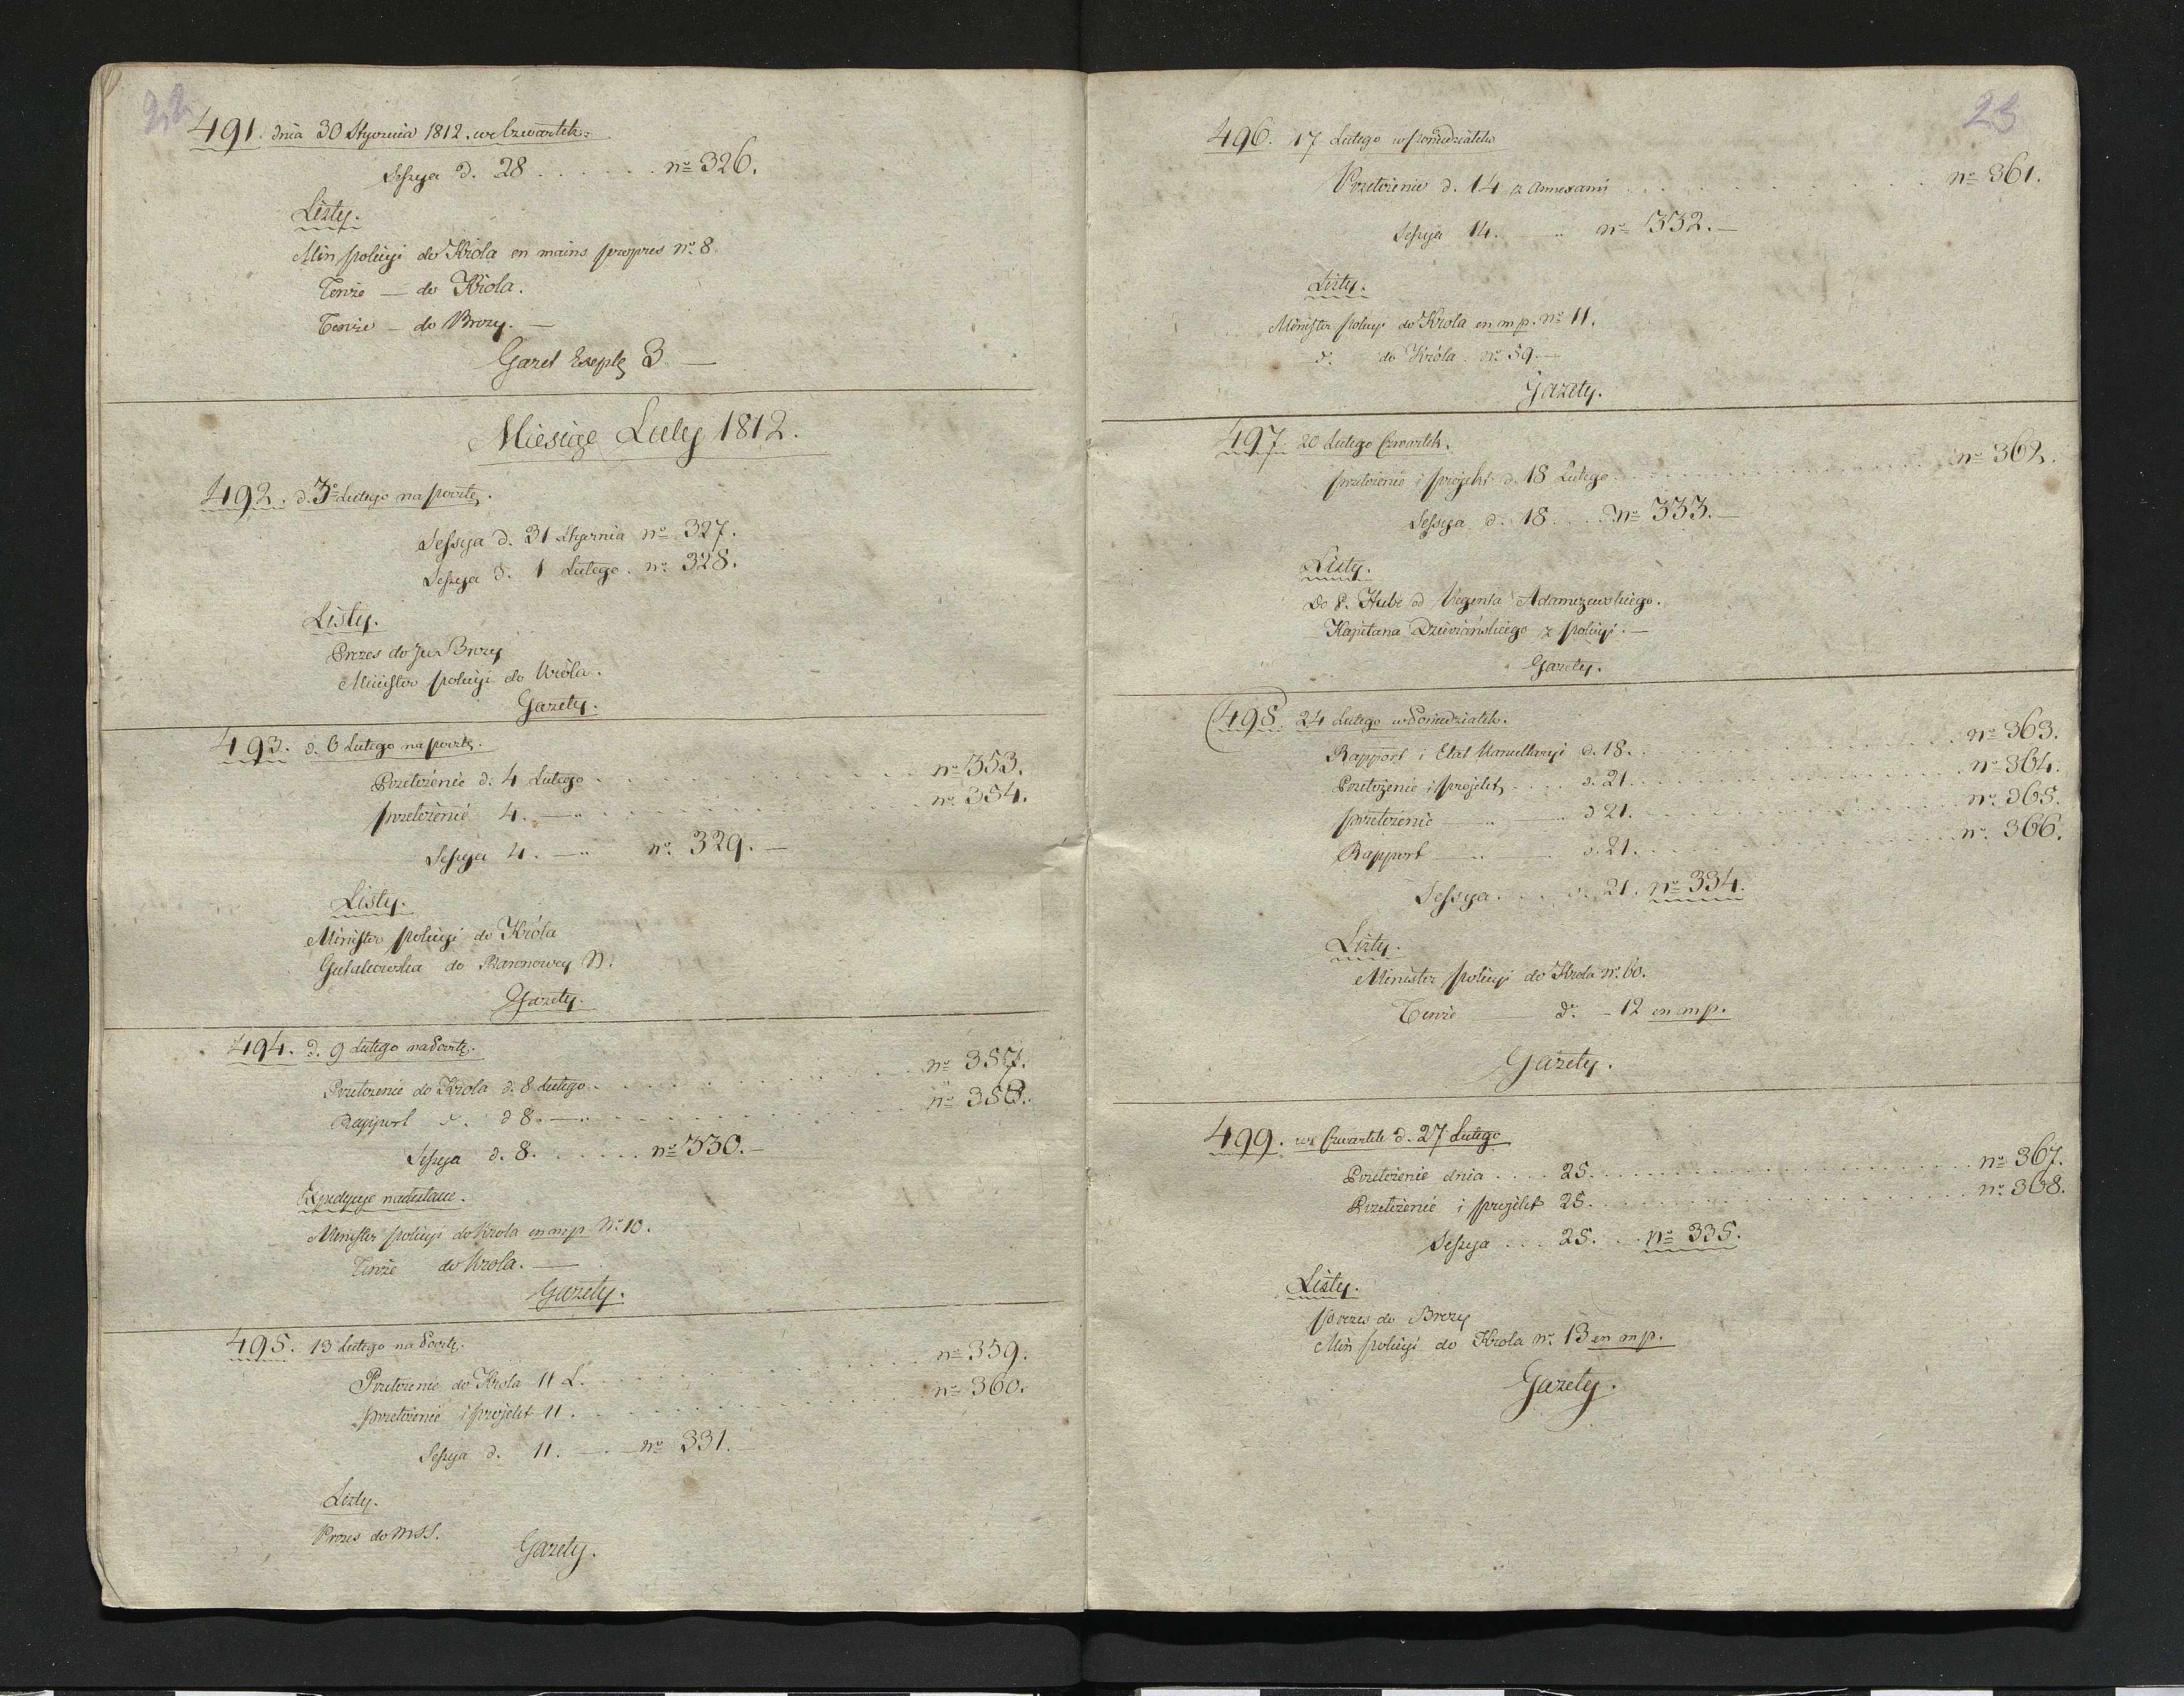 22
491. dnia 30 Stycznia 1812. we Czwartek.
Sessya d. 28 . . . . . . nº 326.
Listy.
Min policyi do Króla en mains propres nº 8.
Tenże — do Króla.
Tenże — do Brezy. —
Gazet Exempl 3. —
Miesiąc Luty 1812.
492. d. 3º Lutego na pocztę.
Sessya d. 31 Stycznia nº 327.
Sessya d. 1 Lutego. nº 328.
Listy.
Prezes do Brezy
Minister policyi do Króla.
Gazety.
493. d. 6 Lutego na pocztę.
Przełożenie d. 4 Lutego . . . . . nº 353.
przełożenie 4. — „ . . . . . nº 354.
Sessya 4. — „ nº 329. —
Listy.
Minister policyi do Króla
Gutakowska do Baronowey N.
Gazety.
494. d. 9 Lutego na Pocztę.
Przełożenie do Króla d. 8 Lutego . . . . . nº 357.
Rapport d. d 8. — „ . . . . . nº 358.
Sessya d. 8. . . . . . nº 330. —
Expedycye nadesłane.
Minister policyi do Króla en mp Nº 10.
Tenże do Króla. —
Gazety.
495. 13 Lutego na Pocztę.
Przełożenie do Króla 11 L. . . . . . nº 359.
przełożenie i projekt 11. . . . . . nº 360.
Sessya d. 11. — . — nº 331. —
Listy.
Prezes do MSS.
Gazety.
23
496. 17 Lutego w poniedziałek
Przełożenie d. 14 z Annexami . . . . . nº 361.
Sessya 14. — „ nº 332. —
Listy.
Minister policyi do Króla en mp. nº 11.
d. do Króla nº 59. —
Gazety.
497. 20 Lutego Czwartek.
przełożenie i projekt d. 18 Lutego . . . . . nº 362.
Sessya d. 18 . . . nº 333. —
Listy.
Do P. Hube od Regenta Adamczewskiego.
Kapitana Dziewiańskiego z policyi. —
Gazety.
498. 24 Lutego w Poniedziałek.
Rapport i Etat Kancellaryi d. 18. . . . . . nº 363.
Przełożenie i projekt . . . . d. 21. . . . . . nº 364.
przełożenie — „ — „ d 21. . . . . . nº 365.
Rapport — „ — d. 21. . . . . . nº 366.
Sessya . . . d. 21. nº 334.
Listy.
Minister policyi do Króla nº 60.
Tenże — dº — 12 en mp.
Gazety.
499. we Czwartek d. 27 Lutego
Przełożenie dnia . . . . 25. . . . . . nº 367.
Przełożenie i projekt 25. . . . . . nº 368.
Sessya . . . 25. . . nº 335.
Listy.
prezes do Brezy
Min policyi do Króla nº 13 en mp.
Gazety.